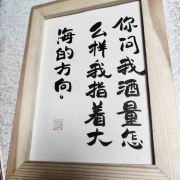 你问我酒量怎
么样我指着大
海的方向。